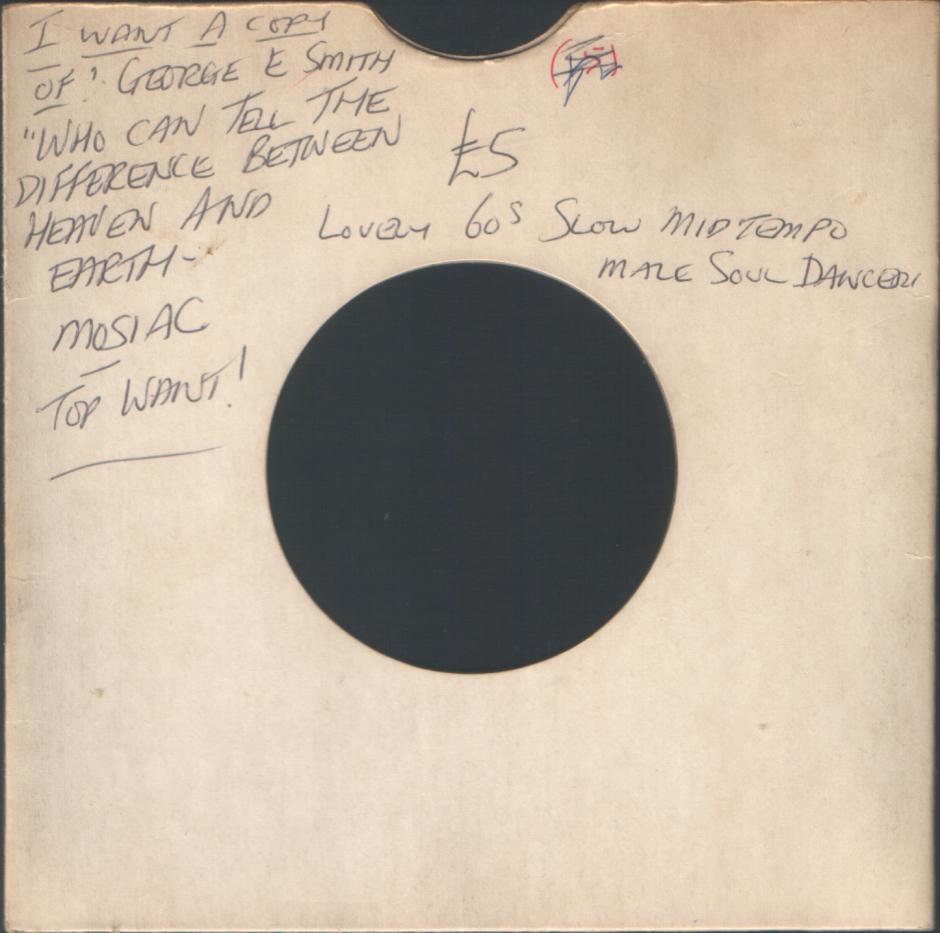 I WANT A COPY
OF: GEORGE E SMITH
"WHO CAN TELL THE
DIFFERENCE BETWEEN
HEAVEN AND
EARTH-
MOSIAC
TOP WANT!
£5
LOVELY 60S SLOW MIDTEMPO
MALE SOUL DANCER